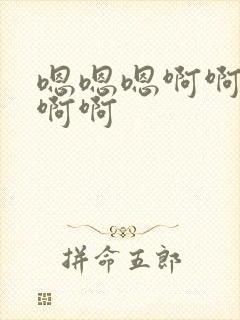 嗯嗯嗯啊啊
啊啊
拼命五郎